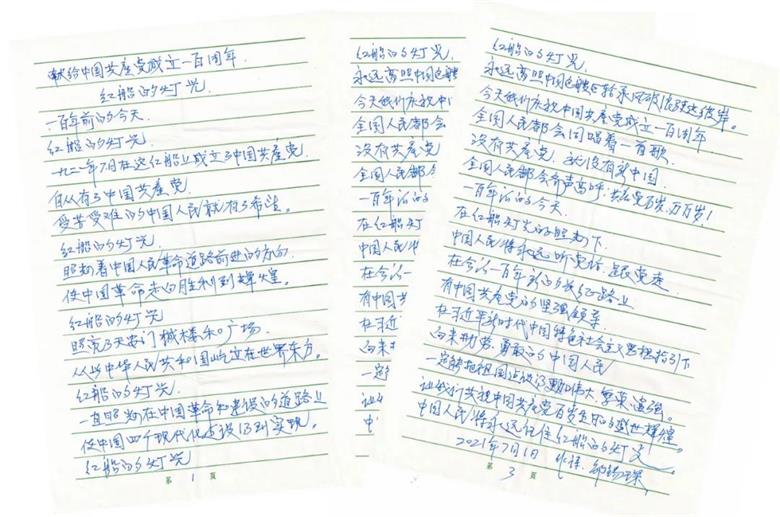 献给中国共产党成立一百周年
红船的灯光
一百年前的今天
红船的灯光
一九二一年7月在这红船上成立了中国共产党
自从有了中国共产党
受苦受难的中国人民就有了希望。
红船的灯光
照耀着中国人民革命道路前进的方向
使中国革命走向胜利到辉煌。
红船的灯光
照亮了天安门城楼和广场
从此中华人民共和国屹立在世界东方。
红船的灯光
一直照耀在中国革命和建设的道路上
使中国四个现代化建设得到实现。
红船的灯光
第 1 页
红船的灯光
永远高照中国
今天我们庆祝中
全国人民都会
没有共产党
全国人民都会
一百年后的
在红船灯
中国人民
在今后一
有中国共
在习近
向来
一定
让
中
红船的灯光
永远高照中国
今天我们庆祝中国共产党成立一百周年
全国人民都会回唱着一首歌
没有共产党就没有新中国
全国人民都会齐声高呼共产党万岁，万万岁！
一百年后的今天
在红船灯光的照耀下
中国人民将永远听党话，跟党走
在今后一百年新的长征路上
有中国共产党的坚强领导
在习近平新时代中国特色社会主义思想指引下
向来勤劳勇敢的中国人民
一定能把祖国建设得更加伟大、繁荣富强。
让我们共祝中国共产党百岁生日的盛世辉煌。
中国人民将永远记住红船的灯光
2021年7月1日 作译
第 3 页